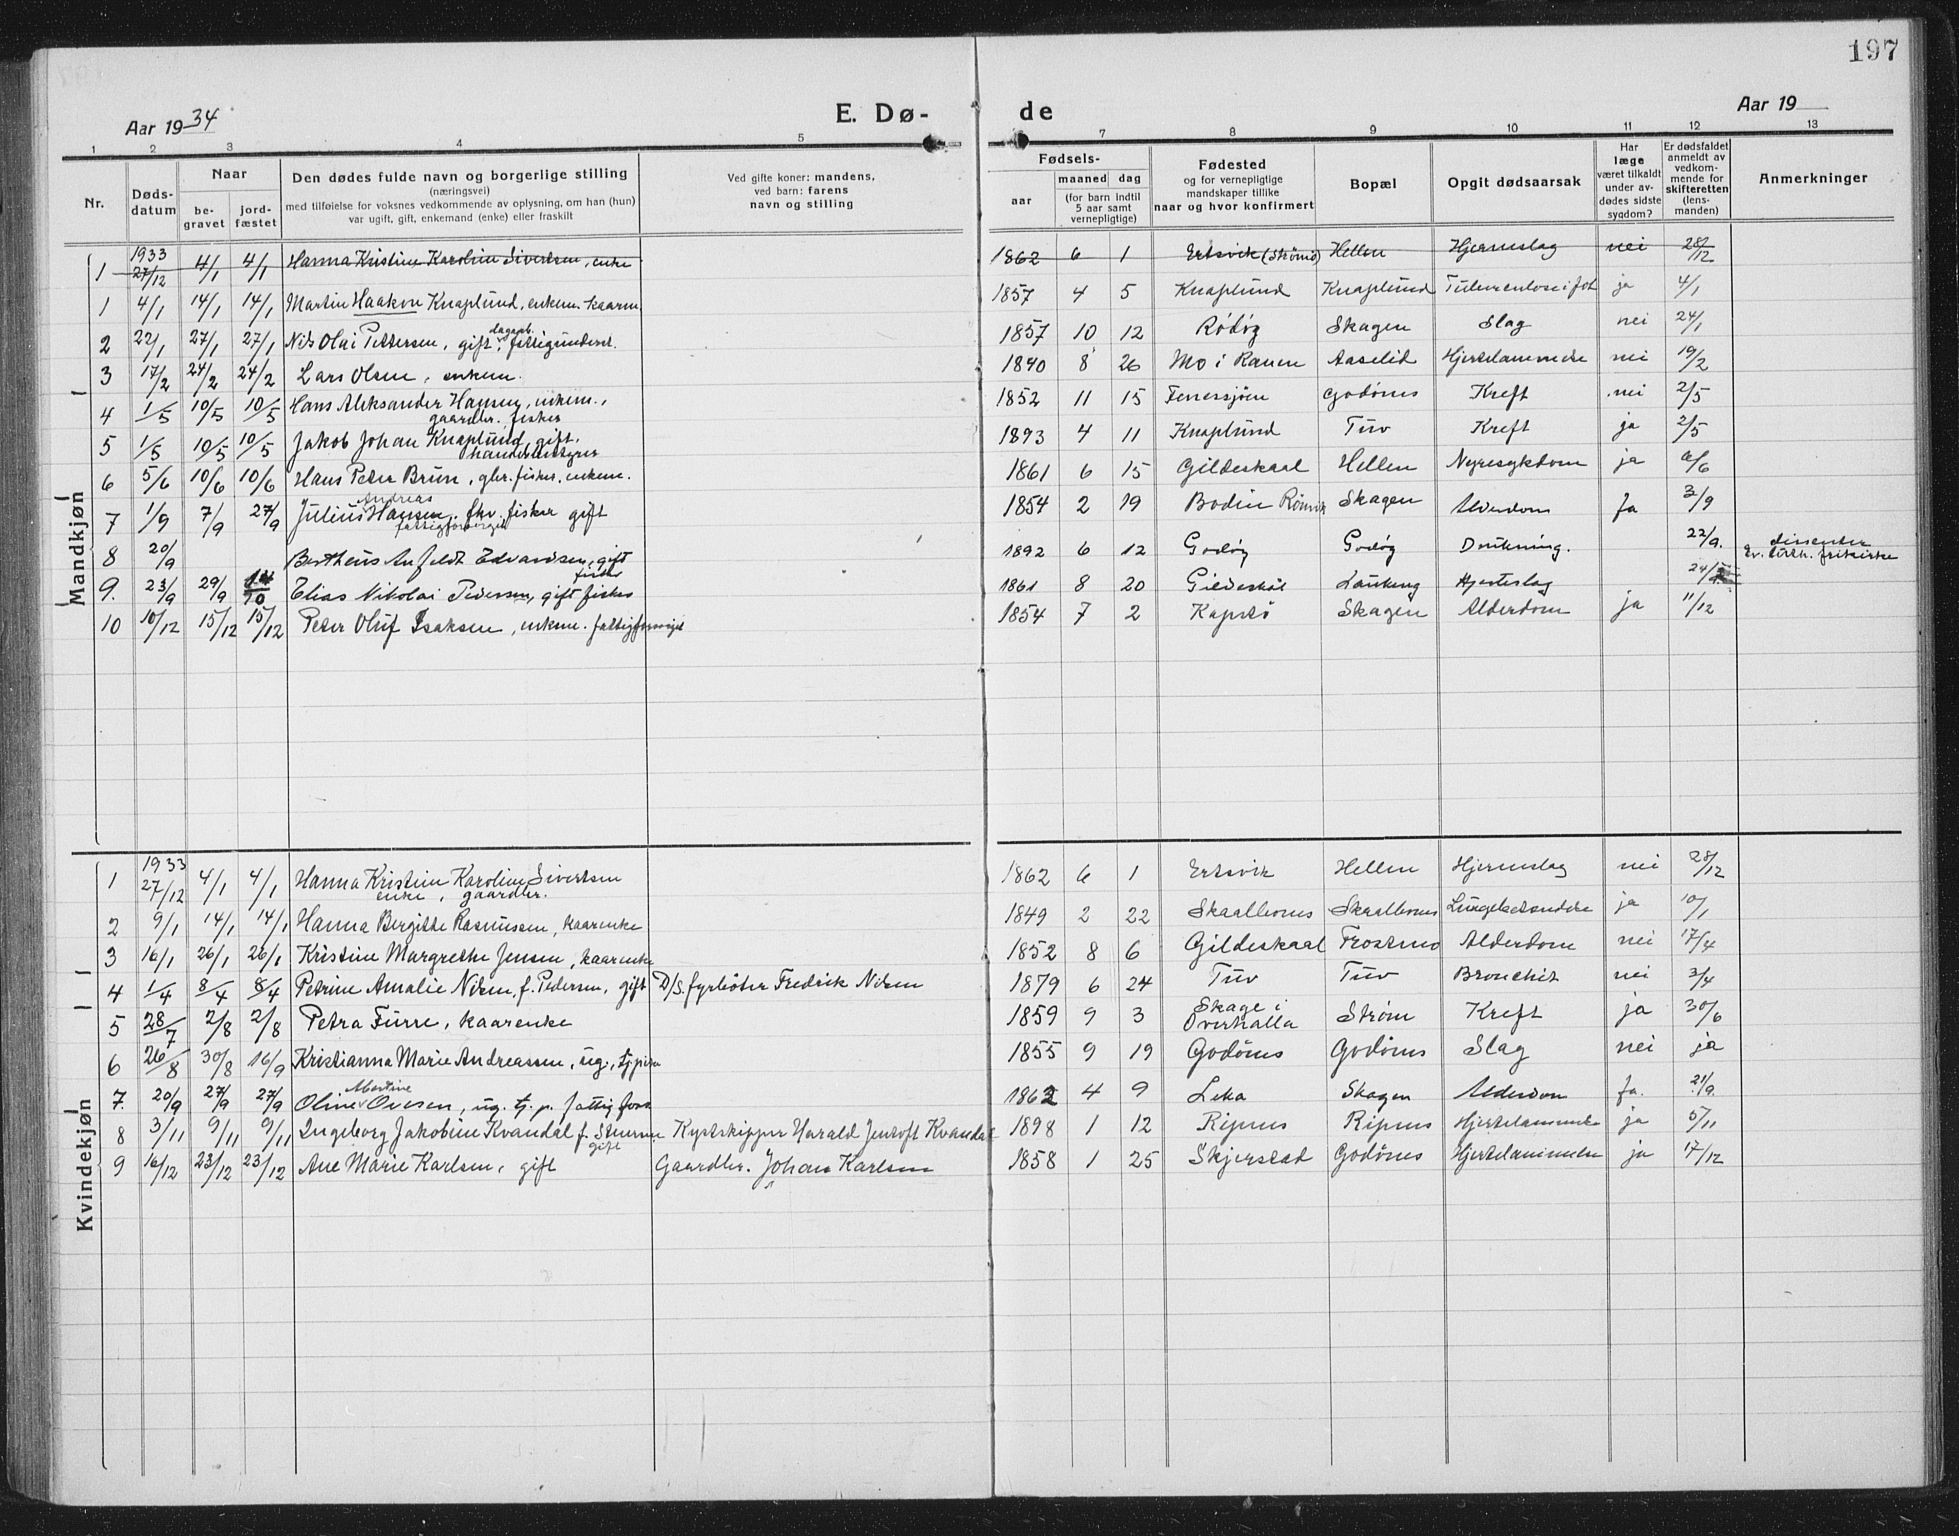 197
Aar 1934 E. Dø- de Aar 19
1 2 3 4 5 7 8 9 10 11 12 13
Nr. Dødsdatum Naar begravet jordfæstet Den dødes fulde navn og borgerlige stilling (næringsvei) med tilføielse for voksnes vedkommende av oplysning, om han (hun) var ugift, gift, enkemand (enke) eller fraskilt Ved gifte koner: mandens, ved barn: farens navn og stilling Fødsels- aar maaned dag (for barn indtil 5 aar samt vernepligtige) Fødested og for vernepligtige mandskaper tillike naar og hvor konfirmert Bopæl Opgit dødsaarsak Har læge været tilkaldt under avdødes sidste sygdom? Er dødsfaldet anmeldt av vedkommende for skifteretten (lensmanden) Anmerkninger
Mandkjøn
1 1933 27/12 4/1 4/1 Hanna Kristine Karoline Sivertsen, enke 1862 6 1 Ertsvik (Strømd) Hellen Hjerneslag nei 28/12
1 4/1 14/1 14/1 Martin Haakon Knaplund, enkem. kaarm. 1857 4 5 Knaplund Knaplund Tuberculose i fot ja 4/1
2 22/1 27/1 27/1 Nils Olai Pettersen, gift, dagarb. fattigunderst. 1857 10 12 Rødøy Skagen Slag nei 24/1
3 17/2 24/2 24/2 Lars Olsen, enkem. 1840 8 26 Mo i Ranen Aaselid Hjertelammelse nei 19/2
4 1/5 10/5 10/5 Hans Aleksander Hansen, enkem., gaardbr. fisker 1852 11 15 Godønes Kreft nei 2/5
5 1/5 10/5 10/5 Jakob Johan Knaplund, gift, handelsbestyrer 1893 4 11 Knaplund Tuv Kreft ja 2/5
6 5/6 10/6 10/6 Hans Peter Brun, gbr. fisker, enkem. 1861 6 15 Gildeskaal Hellen Nyresygkdom ja 6/6
7 1/9 7/9 27/9 Julius Andreas Hansen, fhv. fisker gift fattigforsørget 1854 2 19 Bodin Rønvik Skagen Alderdom ja 3/9
8 20/9 Bertheus Anfeldt Edvardsen, gift fisker 1892 6 12 Godøy Godøy Drukning. 22/9. dissenter Ev. luth. frikirke
9. 23/9 29/9 14/10 Elias Nikolai Pedersen, gift fisker 1861 8 20 Gildeskål Løukeng Hjerteslag 24/
10 10/12 15/12 15/12 Peter Oluf Isaksen, enkem. fattigforsørget 1854 7 2 Kapstø Skagen Alderdom ja 11/12
Kvindekjøn
1 1933 27/12 4/1 4/1 Hanna Kristine Karoline Sivertsen enke, gaardbr. 1862 6 1 Ertsvik Hellen Hjerneslag nei 28/12
2 9/1 14/1 14/1 Hanna Bergitte Rasmussen, kaarenke 1849 2 22 Skaalbones Skaalbones Lungebetændelse ja 10/1
3 16/1 26/1 26/1 Kristine Margrethe Jensen, kaarenke 1852 8 6 Gildeskaal Frostmo Alderdom nei 17/4
4 1/4 8/4 8/4 Petrine Amalie Nilsen, f. Pedersen, gift D/S. fyrbøter Fredrik Nilsen 1879 6 24 Tuv Tuv Bronchit nei 3/4
5 28/7 2/8 2/8 Petra Furre, kaarenke 1859 9 3 Skage i Overhalla Strøm Kreft ja 30/6
6 26/8 30/8 16/9 Kristianna Marie Andreassen, ug., tjpike 1855 9 19 Godønes Godønes Slag nei ja
7. 20/9 27/9 27/9 Oline Albertine Ovesen, ug. tj. p. fattig fors 1862 4 9 Leka Skagen Alderdom ja. 21/9.
8 3/11 9/11 9/11 Ingeborg Jakobine Kvandal f. gift Kystskipper Harald Jentoft Kvandal 1898 1 12 Ripnes Ripnes Hjertelammelse ja 5/11
9 16/12 23/12 23/12 Ane Marie Karlsen, gift Gaardbr. Johan Karlsen 1858 1 25 Skjerstad Godønes Hjertelammelse ja 17/12